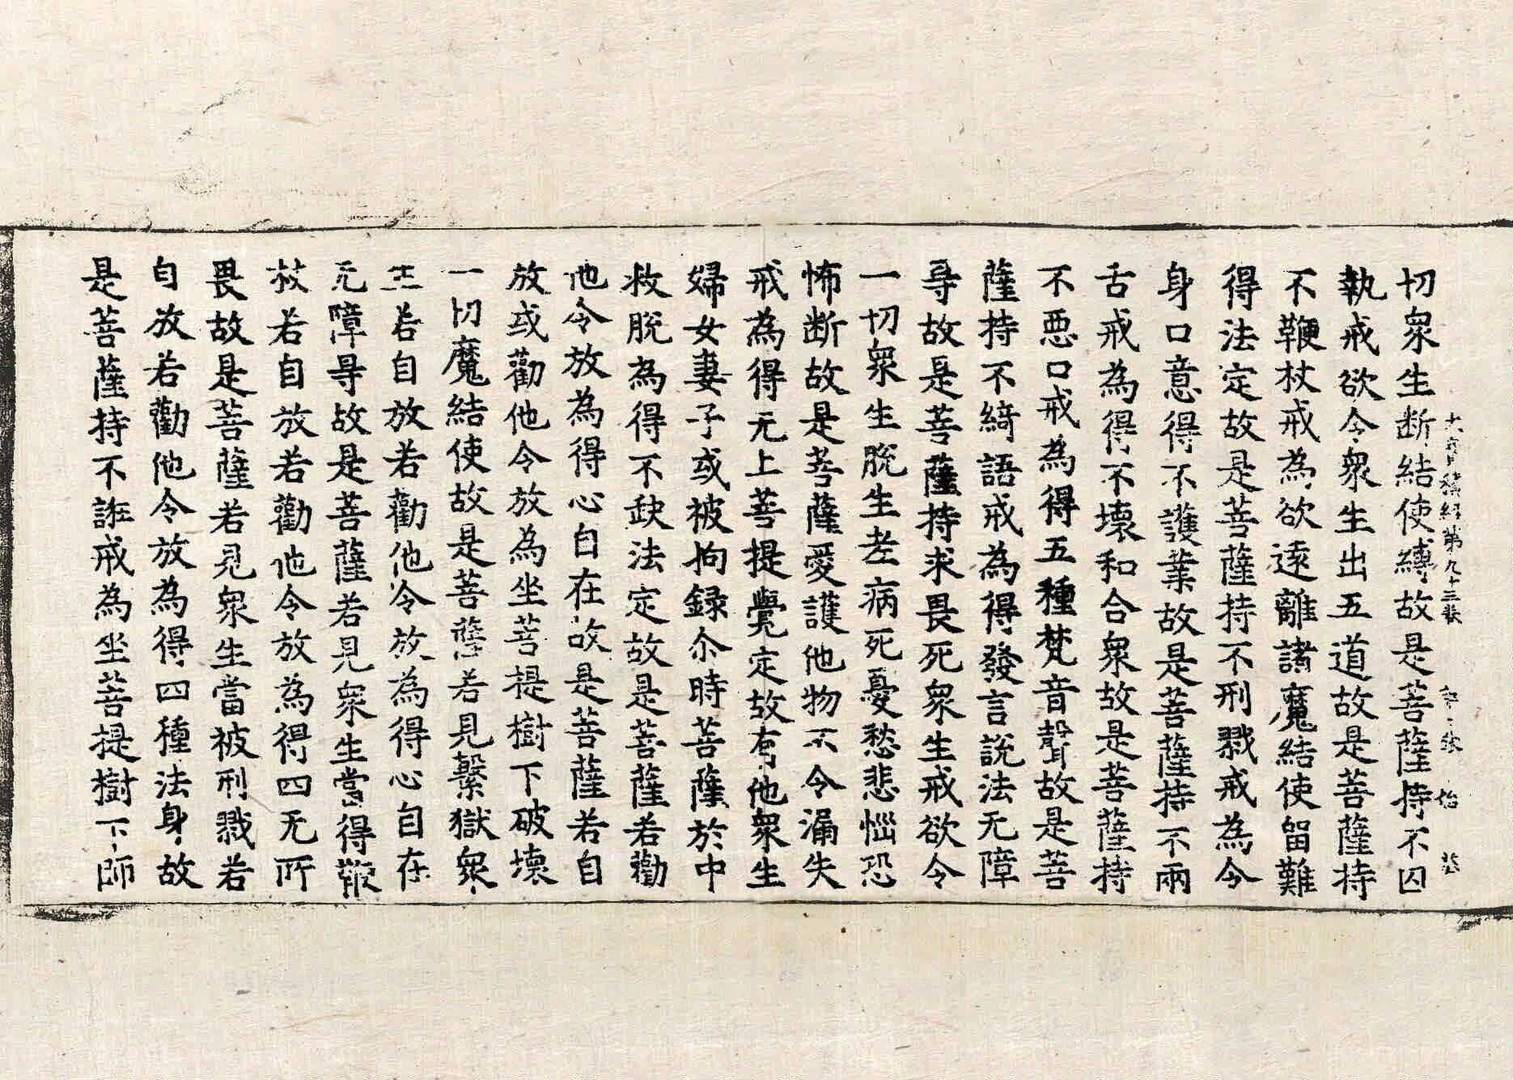 大寶積經第九十三卷 第二張 始
切衆生断結使縛故是菩薩持不囚
執戒欲令衆生出五道故是菩薩持
不鞭杖戒為欲遠離諸魔結使留難
得法定故是菩薩持不刑戮戒為令
身口意得不護業故是菩薩持不兩
舌戒為得不壊和合衆故是菩薩持
不悪口戒為得五種梵音聲故是菩
薩持不綺語戒為得發言說法无障
㝵故是菩薩持求畏死衆生戒欲令
一切衆生脫生老病死憂愁悲惱恐
怖断故是菩薩愛護他物不令漏失
戒為得无上菩提覺定故有他衆生
婦女妻子或被拘録尒時菩薩於中
救脫為得不缺法定故是菩薩若勸
他令放為得心自在故是菩薩若自
放或勸他令放為坐菩提樹下破壊
一切魔結使故是菩薩若見繋獄衆
生若自放若勸他令放為得心自在
无障㝵故是菩薩若見衆生當得鞭
杖若自放若勸他令放為得四无所
畏故是菩薩若見衆生當被刑戮若
自放若勸他令放為得四種法身故
是菩薩持不誑戒為坐菩提樹下師